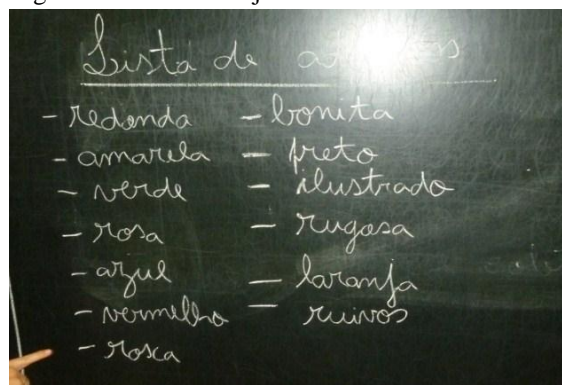 Lista de
- redonda
- amarela
- verde
- rosa
- azul
- vermelho
- rosca
- bonita
- preto
- ilustrado
- rugosa
- laranja
- ruivos